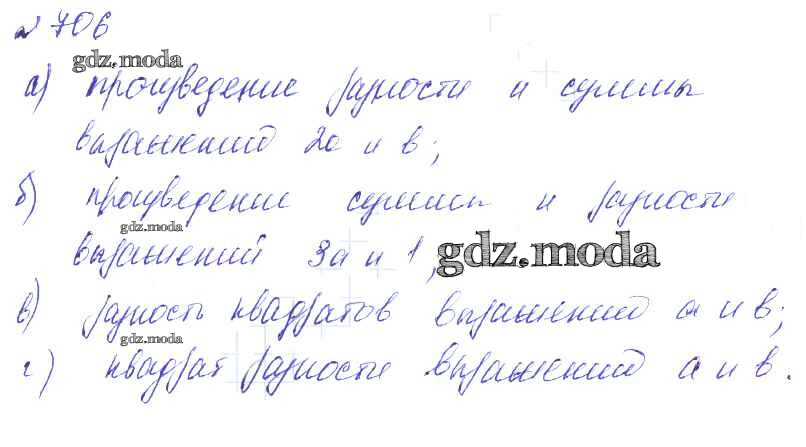 № 706
gdz.moda
а) произведение разности и суммы
выражений 2a и b;
б) произведение суммы и разности
gdz.moda
выражений 3a и 1,
gdz.moda
в) разность квадратов выражений a и b;
gdz.moda
г) квадрат разности выражений a и b.